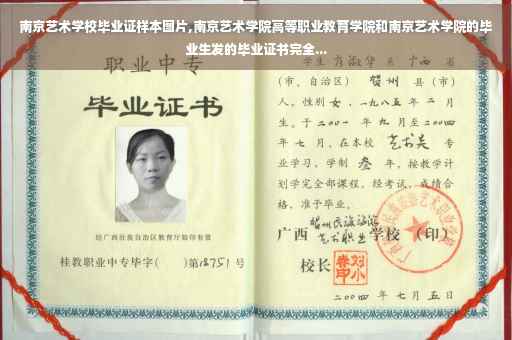 南京艺术学校毕业证样本图片,南京艺术学院高等职业教育学院和南京艺术学院的毕
业生发的毕业证书完全...
职业中专
毕业证书
经广西壮族自治区教育厅验印有效
桂教职业中专毕字( )第18751号
学生 系 广西 省
(市、自治区) 贺州 县(市)
人，性别 女，一九八五年 二 月
生。于 二00一 年 九 月至 二00四
年 七 月，在本校 艺术类 专
业学习，学制 叁 年，按教学计
划学完全部课程，经考试，成绩合
格，准予毕业。
贺州民族旅游
广西 艺术职业 学校 (印)
校长
二00四 年 七 月 五 日